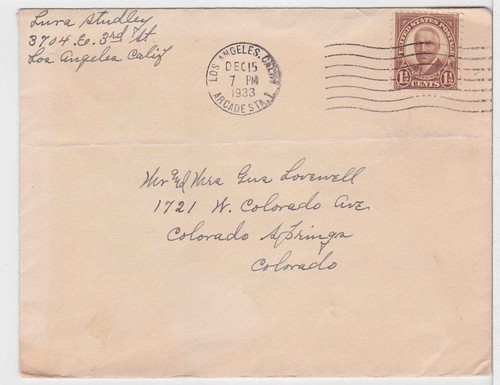 Lura Studley
3704. E. 3rd St
Los Angeles Calif
LOS ANGELES, CALIF.
DEC 15
7 PM
1933
ARCADE STA. 1
UNITED STATES POSTAGE
1½ 1½
CENTS
Mr and Mrs Gus Lovewell
1721 W. Colorado Ave.
Colorado Springs
Colorado